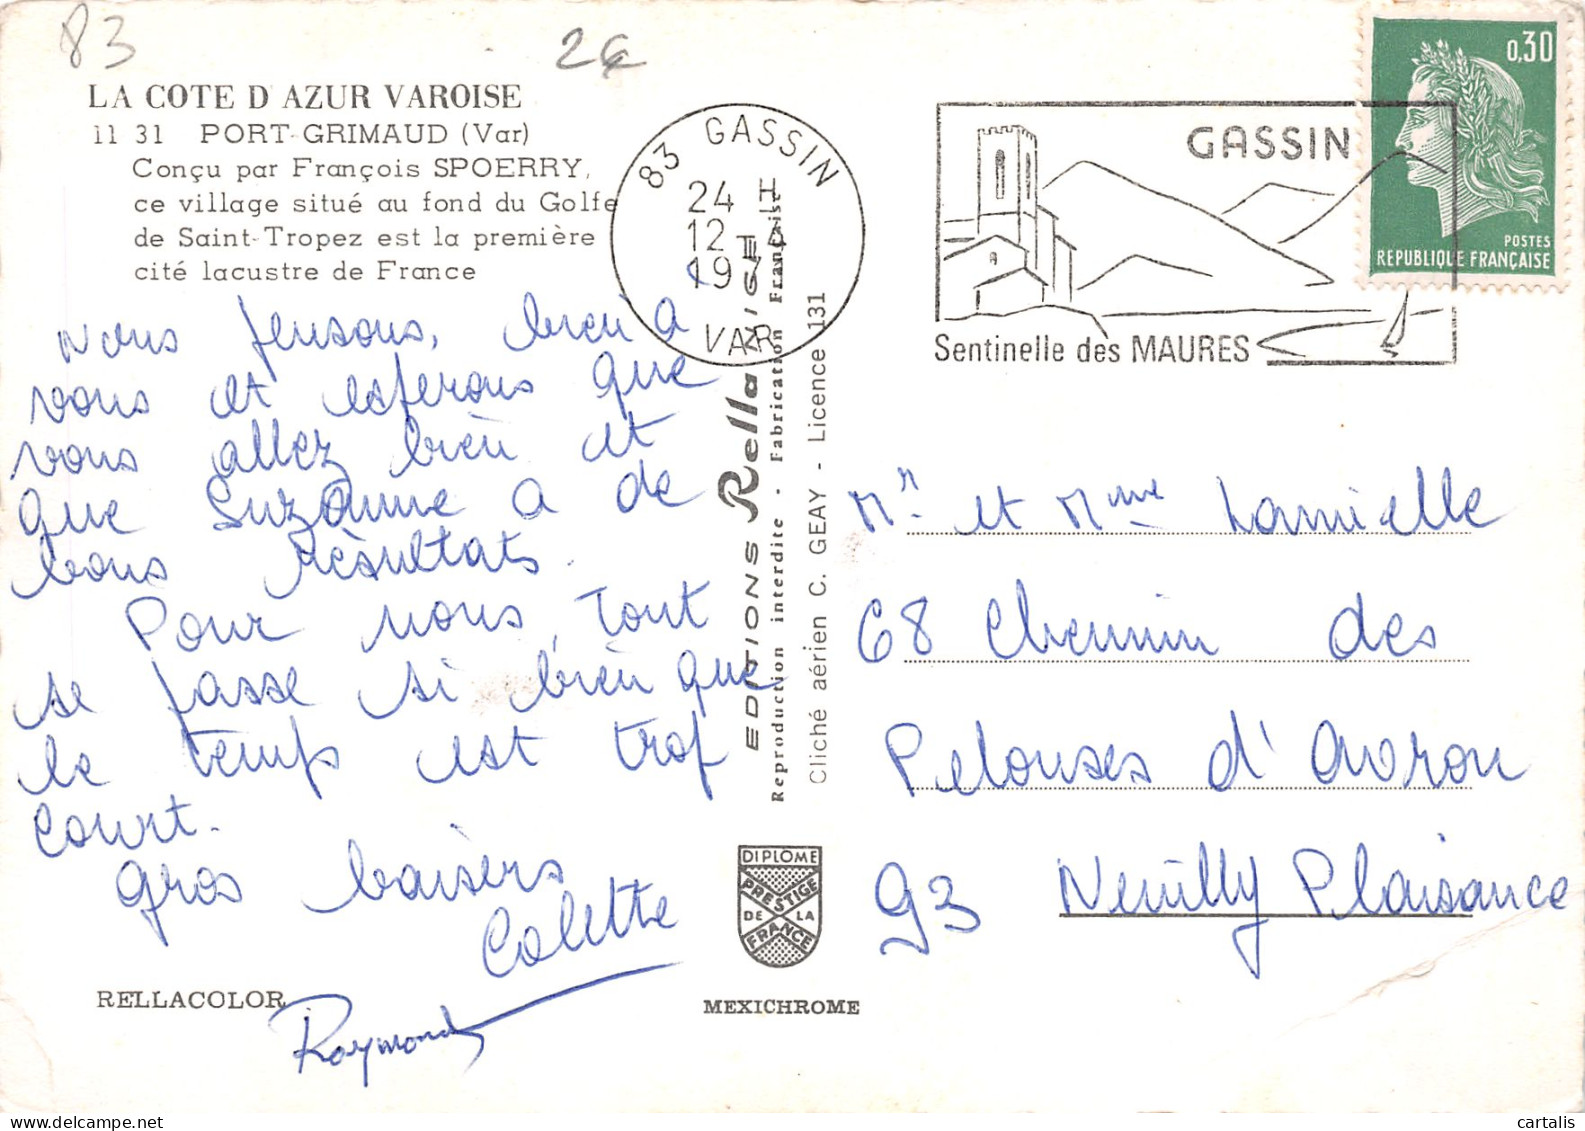 83
2€
LA COTE D'AZUR VAROISE
11 31 PORT-GRIMAUD (Var)
Conçu par François SPOERRY,
ce village situé au fond du Golfe
de Saint-Tropez est la première
cité lacustre de France
Nous pensons, bien à
vous et espérons que
vous allez bien et
que Suzanne a de
bons résultats.
Pour nous, tout
se passe si bien que
le temps est trop
court.
Gros baisers
Colette
Raymond
RELLACOLOR
83 GASSIN
24 H
12 - 4
19
VAR
EDITIONS Rella NICE
Reproduction interdite - Fabrication Française
Cliché aérien C. GEAY - Licence 131
DIPLOME
PRESTIGE
DE LA
FRANCE
MEXICHROME
GASSIN
Sentinelle des MAURES
0,30
POSTES
REPUBLIQUE FRANÇAISE
Mr et Mme Lamielle
68 Chemin des
Pelouses d'Avron
93 Neuilly Plaisance
delcampe.net
cartalis